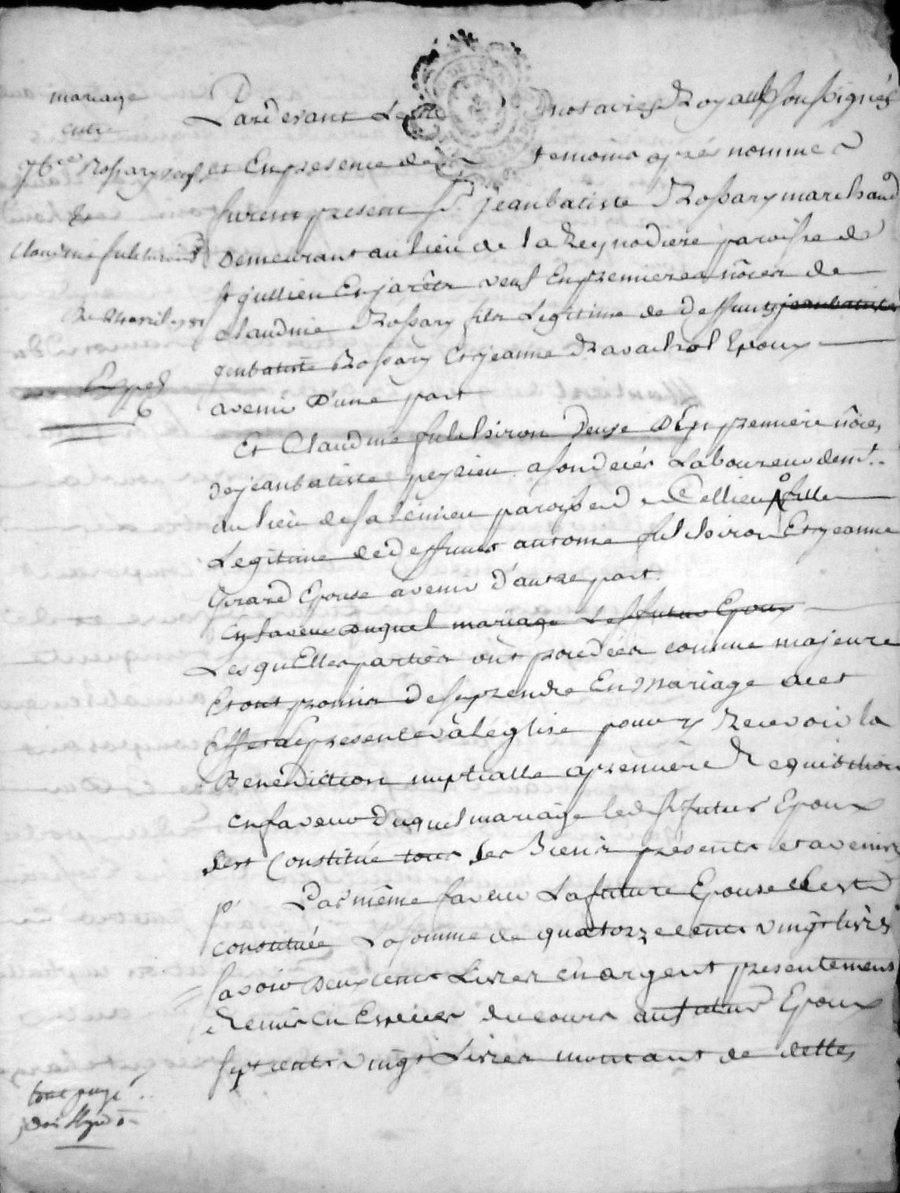 mariage
entre
jbte Rossary veuf
et
Claudine fulchiron
Pardevant Les notaires Royaux soussignés
et En presence des temoins apres nommé
furent present Sr. jean batiste Rossary marchand
Demeurant au lieu de la Reynodiere paroisse de
st jullien En jarêts veuf En premieres nôces de
Claudine Rossary fils Legitime de deffunts jean batiste
jean batiste Rossary Et jeanne Ravachol Epoux
avenir D'une part
Et Claudine fulchiron veuve En premiere nôces
de jean batiste peyrieu a son decés Laboureur demt.
au lieu de salemieu paroisse de Cellieu fille
Legitime de deffunt antoine fulchiron Et jeanne
Girard Epouse avenir d'autre part.
En faveur duquel mariage Le sr futur Epoux
Lesquelles parties ont procedées comme majeure
Et ont promis de se prendre En mariage a cet
Effet se presenter a l'église pour y Recevoir la
Benédiction nuptialle a premiere Requisition
en faveur duquel mariage led. sr futur Epoux
s'est Constitué tous ses Biens présents et avenirs
Par même faveur La future Epouse s'est
constituée La somme de quatorze cents vingt livres
savoir deux cents Livres En argent presentement
Remis en Espèces du cours au futur Epoux
sept cents vingt Livres montant de dettes